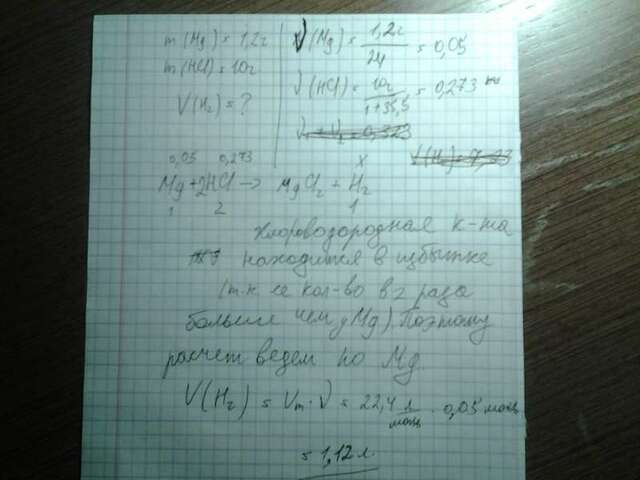 m(Mg) = 1,2г
m(HCl) = 10г
V(H₂) = ?
ν(Mg) = 1,2г / 24 = 0,05
ν(HCl) = 10г / 1+35,5 = 0,273
0,05 0,273 x
Mg + 2HCl → MgCl₂ + H₂
1 2 1
Хлороводородная к-та
находится в избытке
(т.к. её кол-во в 2 раза
больше чем у Mg). Поэтому
расчет ведем по Mg
V(H₂) = Vm · ν = 22,4 л/моль · 0,05 моль
= 1,12 л.